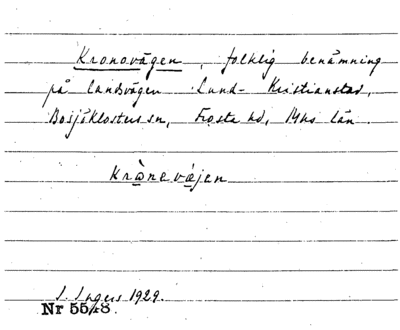 Kronovägen, folklig benämning
på landsvägen Lund-Kristianstad,
Bosjöklosters sn, Frosta hd, Mhs län.
krònevä̀jen
I. Ingers 1929.
Nr 55/48.